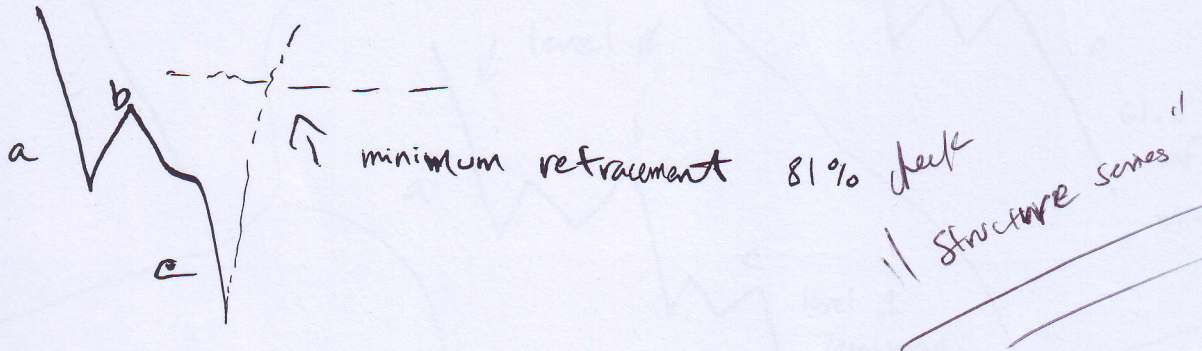 b
a
minimum retracement 81% check
"structure series"
c